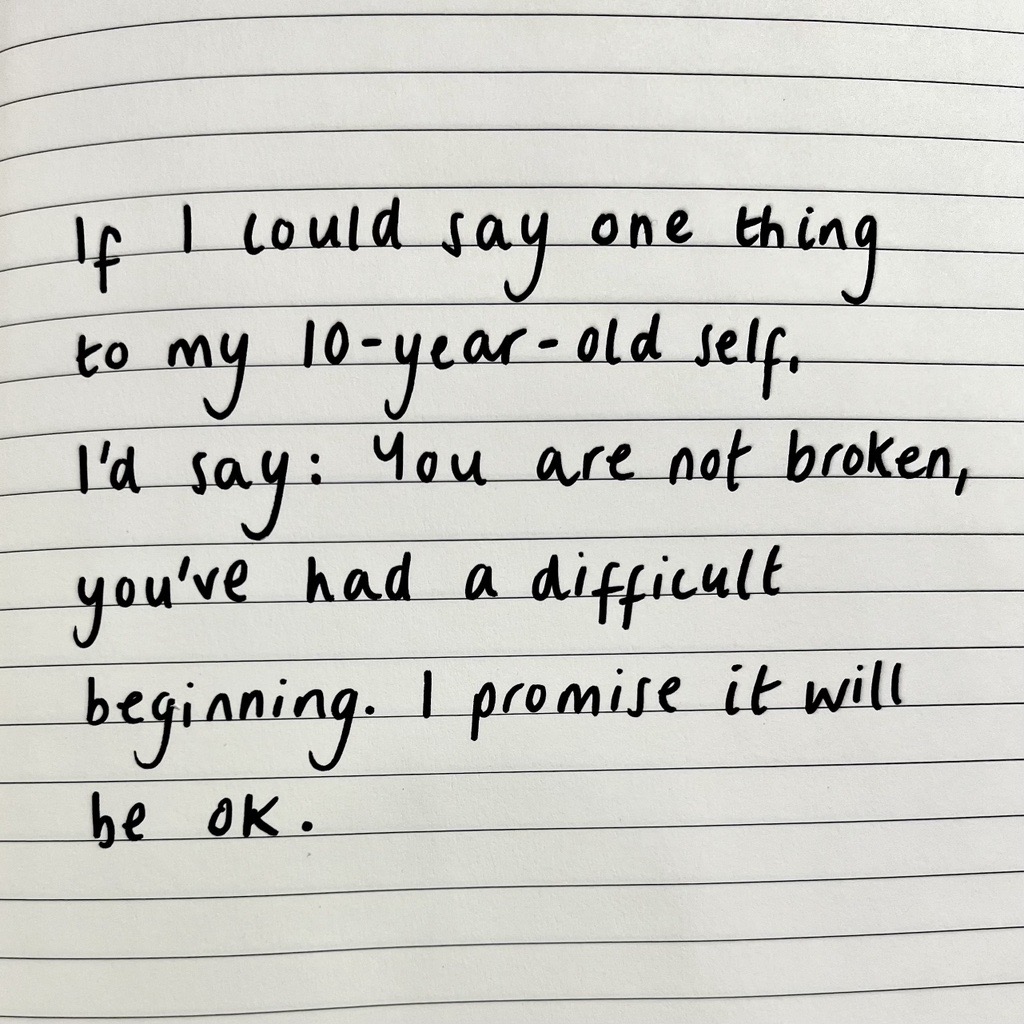 If I could say one thing
to my 10-year-old self,
I'd say: You are not broken,
you've had a difficult
beginning. I promise it will
be OK.